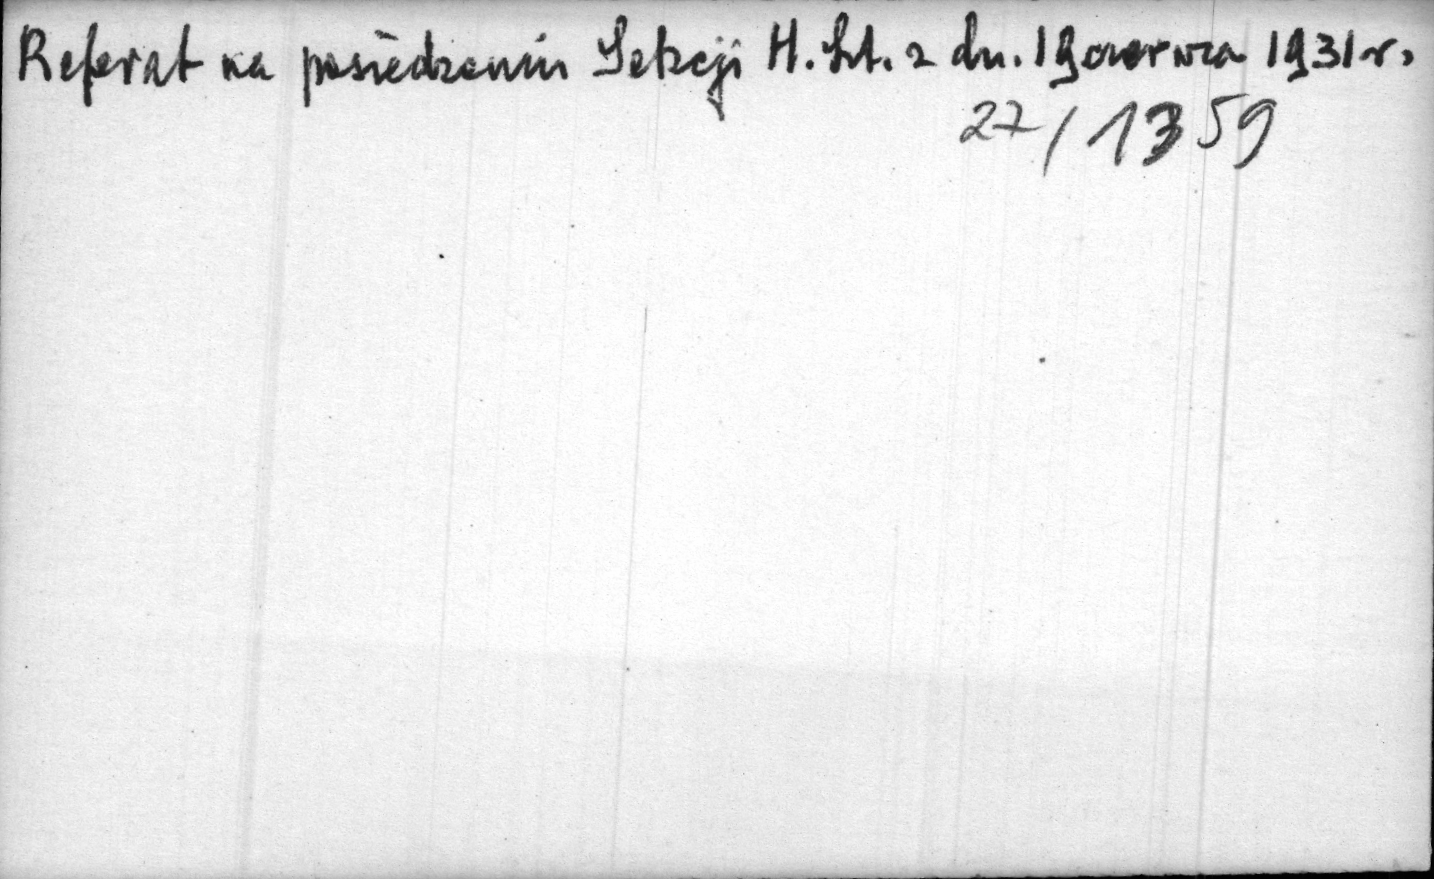 Referat na posiedzeniu Sekcji H. Szt. z dn. 19 czerwca 1931 r.
27/1359